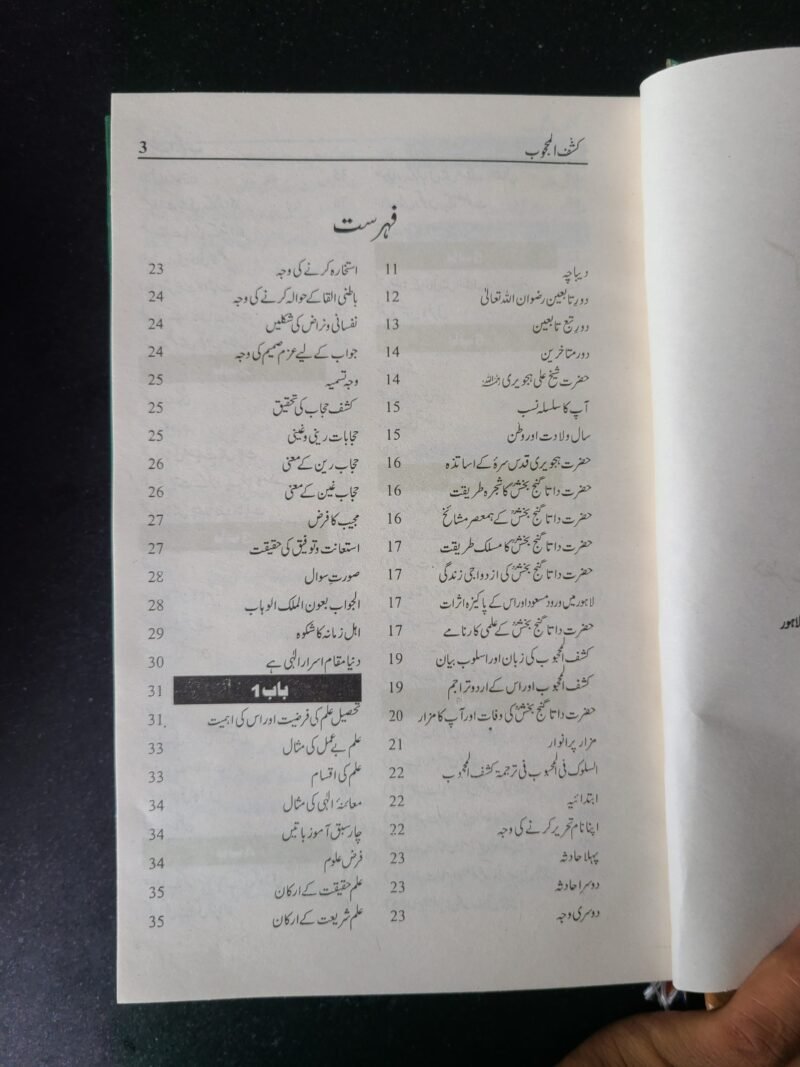 کشف المحجوب
3
فہرست
دیباچہ 11
دور تابعین رضوان اللہ تعالیٰ 12
دور تبع تابعین 13
دور متاخرین 14
حضرت شیخ علی ہجویری رحمۃ اللہ علیہ 14
آپ کا سلسلہ نسب 15
سال ولادت اور وطن 15
حضرت ہجویری قدس سرہٗ کے اساتذہ 16
حضرت داتا گنج بخشؒ کا شجرہ طریقت 16
حضرت داتا گنج بخشؒ کے ہمعصر مشائخ 16
حضرت داتا گنج بخشؒ کا مسلک طریقت 17
حضرت داتا گنج بخشؒ کی ازدواجی زندگی 17
لاہور میں ورود مسعود اور اس کے پاکیزہ اثرات 17
حضرت داتا گنج بخشؒ کے علمی کارنامے 17
کشف المحجوب کی زبان اور اسلوب بیان 19
کشف المحجوب اور اس کے اردو تراجم 19
حضرت داتا گنج بخشؒ کی وفات اور آپ کا مزار 20
مزار پرانوار 21
السلوک فی المحبوب فی ترجمۃ کشف المحجوب 22
ابتدائیہ 22
اپنا نام تحریر کرنے کی وجہ 22
پہلا حادثہ 23
دوسرا حادثہ 23
دوسری وجہ 23
استخارہ کرنے کی وجہ 23
باطنی القا کے حوالہ کرنے کی وجہ 24
نفسانی ونراض کی شکلیں 24
جواب کے لیے عزم صمیم کی وجہ 24
وجہ تسمیہ 25
کشف حجاب کی تحقیق 25
حجابات رینی و غینی 25
حجاب رین کے معنی 26
حجاب غین کے معنی 26
مجیب کا فرض 27
استعانت و توفیق کی حقیقت 27
صورتِ سوال 28
الجواب بعون الملک الوہاب 28
اہل زمانہ کا شکوہ 29
دنیا مقام اسرار الٰہی ہے 30
باب 1 31
تحصیل علم کی فرضیت اور اس کی اہمیت 31
علم بے عمل کی مثال 33
علم کی اقسام 33
معائنہ الٰہی کی مثال 34
چار سبق آموز باتیں 34
فرض علوم 34
علم حقیقت کے ارکان 35
علم شریعت کے ارکان 35
لاہور